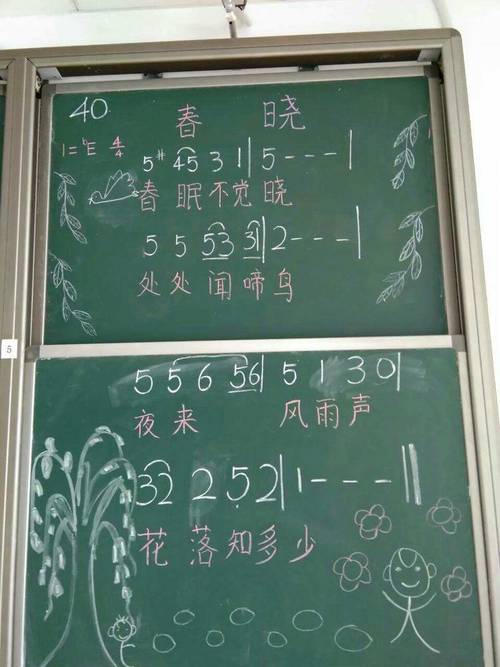 40.
春 晓
1=ᵇE 4/4
5 #45 3 1 | 5 - - - |
春 眠 不 觉 晓
5 5 53 31 | 2 - - - |
处 处 闻 啼 鸟
5 5 6 56 | 5 1 3 0 |
夜 来 风 雨 声
32 2 5 2 | 1 - - - ||
花 落 知 多 少
5